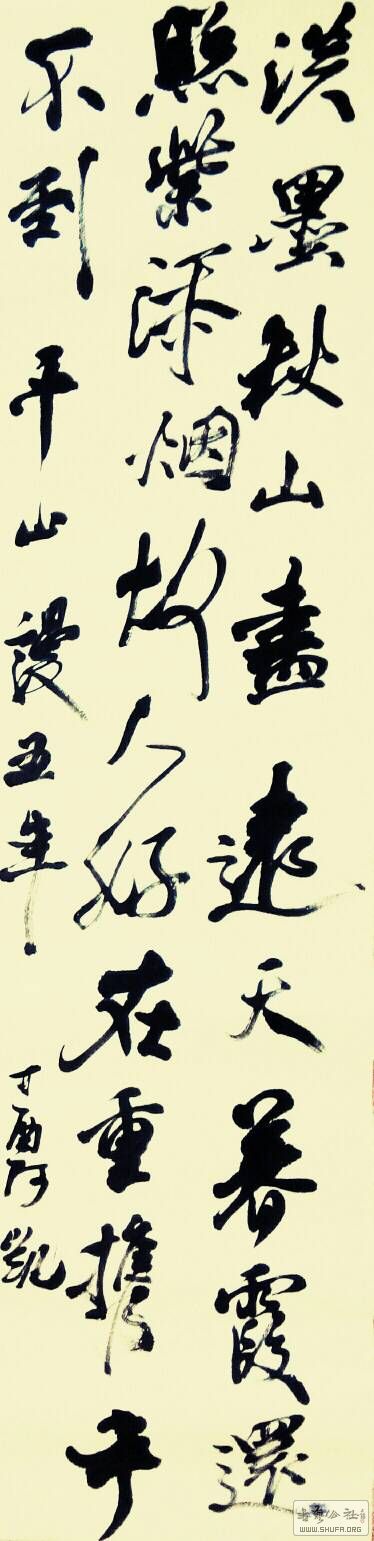 淡墨秋山畫遠天暮霞還
照紫添烟故人好在重携手
不到平山謾五年
丁酉阿凯
WWW.SHUFA.ORG